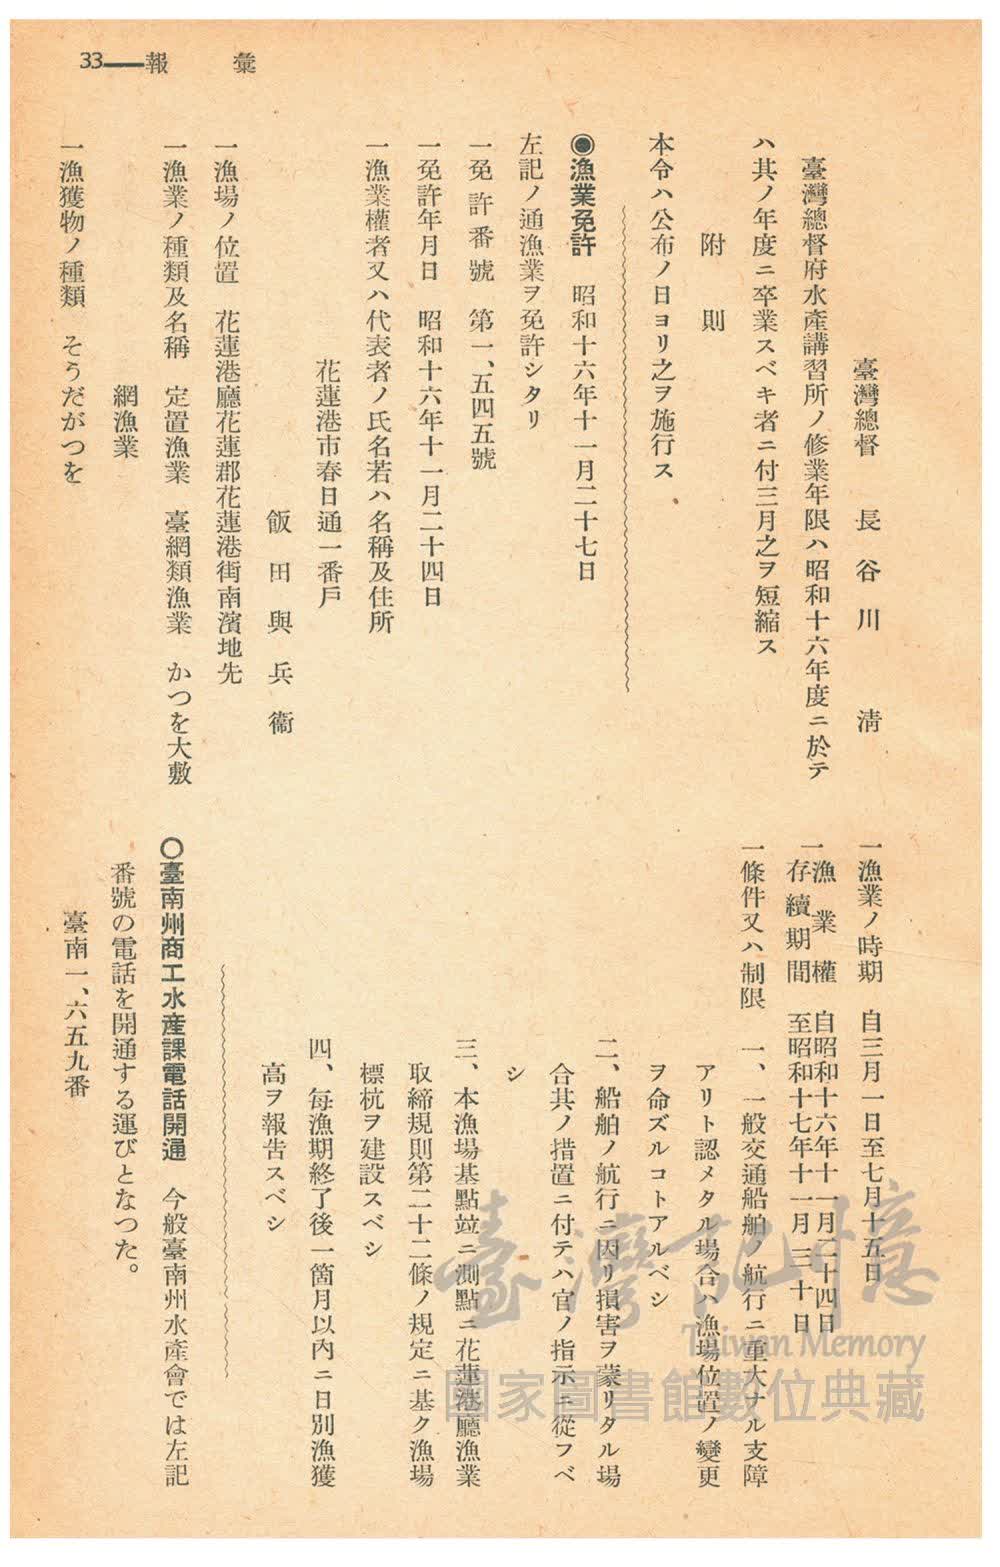 33——報彙
臺灣總督　長谷川　淸
臺灣總督府水產講習所ノ修業年限ハ昭和十六年度ニ於テ
ハ其ノ年度ニ卒業スベキ者ニ付三月之ヲ短縮ス
附則
本令ハ公布ノ日ヨリ之ヲ施行ス
◉漁業免許　昭和十六年十一月二十七日
左記ノ通漁業ヲ免許シタリ
一免許番號　第一、五四五號
一免許年月日　昭和十六年十一月二十四日
一漁業權者又ハ代表者ノ氏名若ハ名稱及住所
花蓮港市春日通一番戶
飯田與兵衞
一漁場ノ位置　花蓮港廳花蓮郡花蓮港街南濱地先
一漁業ノ種類及名稱　定置漁業　臺網類漁業　かつを大敷
網漁業
一漁獲物ノ種類　そうだがつを
一漁業ノ時期　自三月一日至七月十五日
一漁業權存續期間　自昭和十六年十一月二十四日
至昭和十七年十一月三十日
一條件又ハ制限　一、一般交通船舶ノ航行ニ重大ナル支障
アリト認メタル場合ハ漁場位置ノ變更
ヲ命ズルコトアルベシ
二、船舶ノ航行ニ因リ損害ヲ蒙リタル場
合其ノ措置ニ付テハ官ノ指示ニ從フベ
シ
三、本漁場基點竝ニ測點ニ花蓮港廳漁業
取締規則第二十二條ノ規定ニ基ク漁場
標杭ヲ建設スベシ
四、每漁期終了後一箇月以內ニ日別漁獲
高ヲ報吿スベシ
〇臺南州商工水產課電話開通　今般臺南州水產會では左記
番號の電話を開通する運びとなつた。
臺南一、六五九番
臺灣記憶
Taiwan Memory
國家圖書館數位典藏